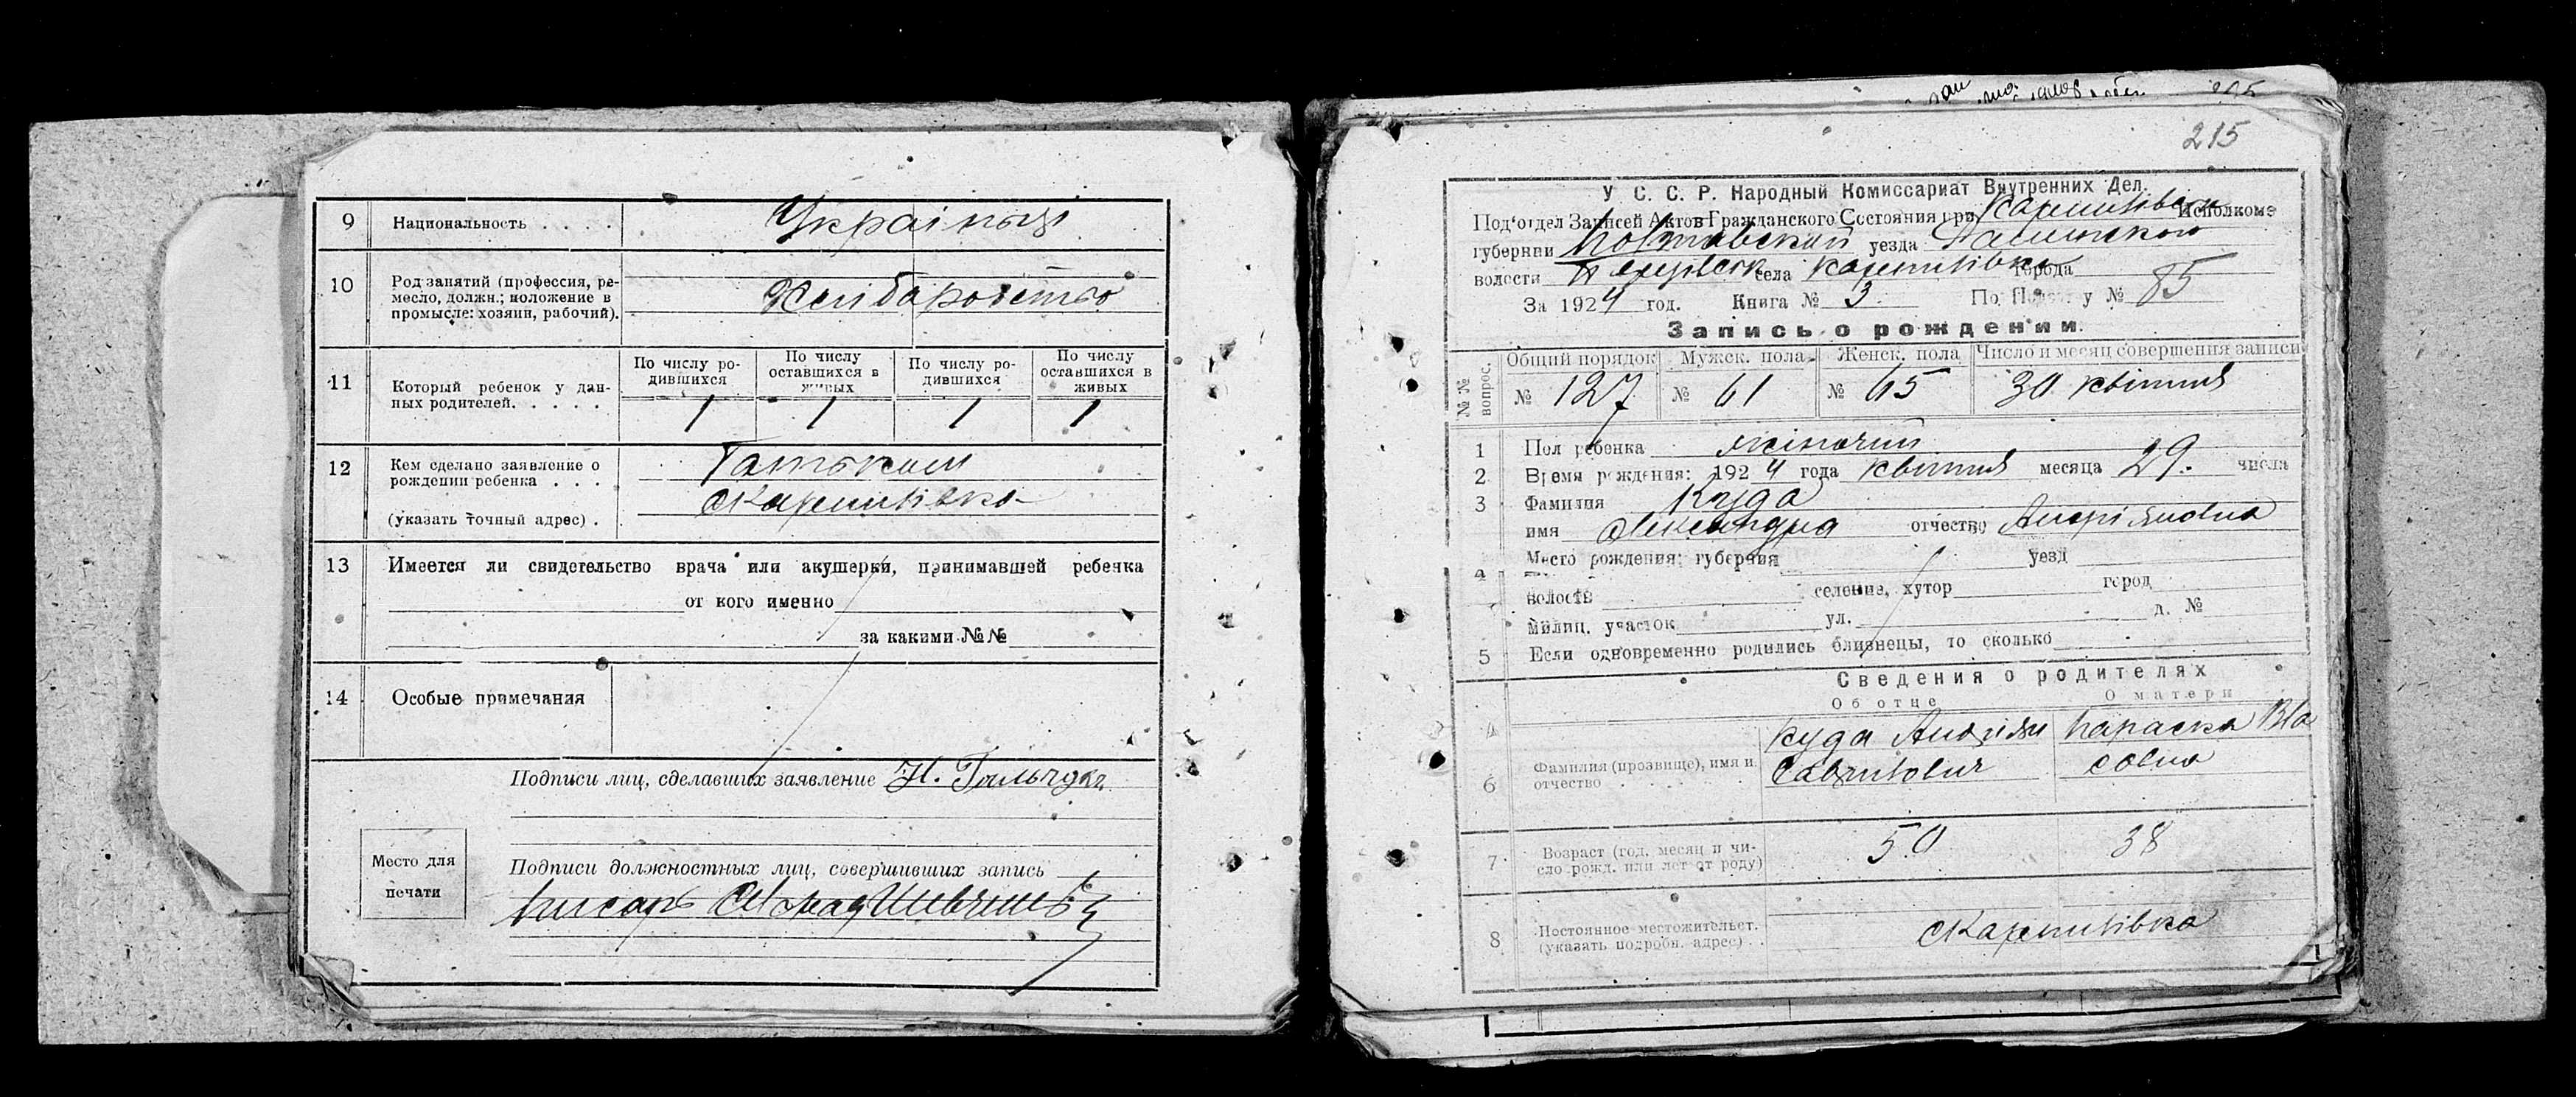 9 Национальность . . . . Українці
10 Род занятий (профессия, ре-
месло, должн.; положение в
промысле: хозяин, рабочий).
Хліборобство
11 Который ребенок у дан-
ных родителей. . . . .
По числу ро-
дившихся
По числу
оставшихся в
живых
По числу ро-
дившихся
По числу
оставшихся в
живых
1 1 1 1
12 Кем сделано заявление о
рождении ребенка . . .
(указать точный адрес) .
Батьком
13 Имеется ли свидетельство врача или акушерки, принимавшей ребенка
от кого именно
за какими №№
14 Особые примечания
Подписи лиц, сделавших заявление Н.
Место для
печати
Подписи должностных лиц, совершивших запись
Писарь
215
У С. С. Р. Народный Комиссариат Внутренних Дел.
Под'отдел Записей Актов Гражданского Состояния при Исполкоме
губернии Полтавской уезда
волости села города
За 1924 год. Книга № 3. По № 85
Запись о рождении.
№№ вопрос.
Общий порядок Мужск. пола Женск. пола Число и месяц совершения записи
№ 127 № 61 № 65 30 квітня
1 Пол ребенка жіночий
2 Время рождения: 1924 года квітня месяца 29. числа
3 Фамилия Куда
имя Олександра отчество Андріяновна
4 Место рождения: губерния уезд
волость селение, хутор город
милиц. участок ул. д. №
5 Если одновременно родились близнецы, то сколько
Сведения о родителях
Об отце О матери
6 Фамилия (прозвище), имя и
отчество . . . . .
Куда Андріян
Савулович
Параска Вла
совна
7 Возраст (год, месяц и чи-
сло рожд. или лет от роду)
50 38
8 Постоянное местожительст.
(указать подробн. адрес) . .